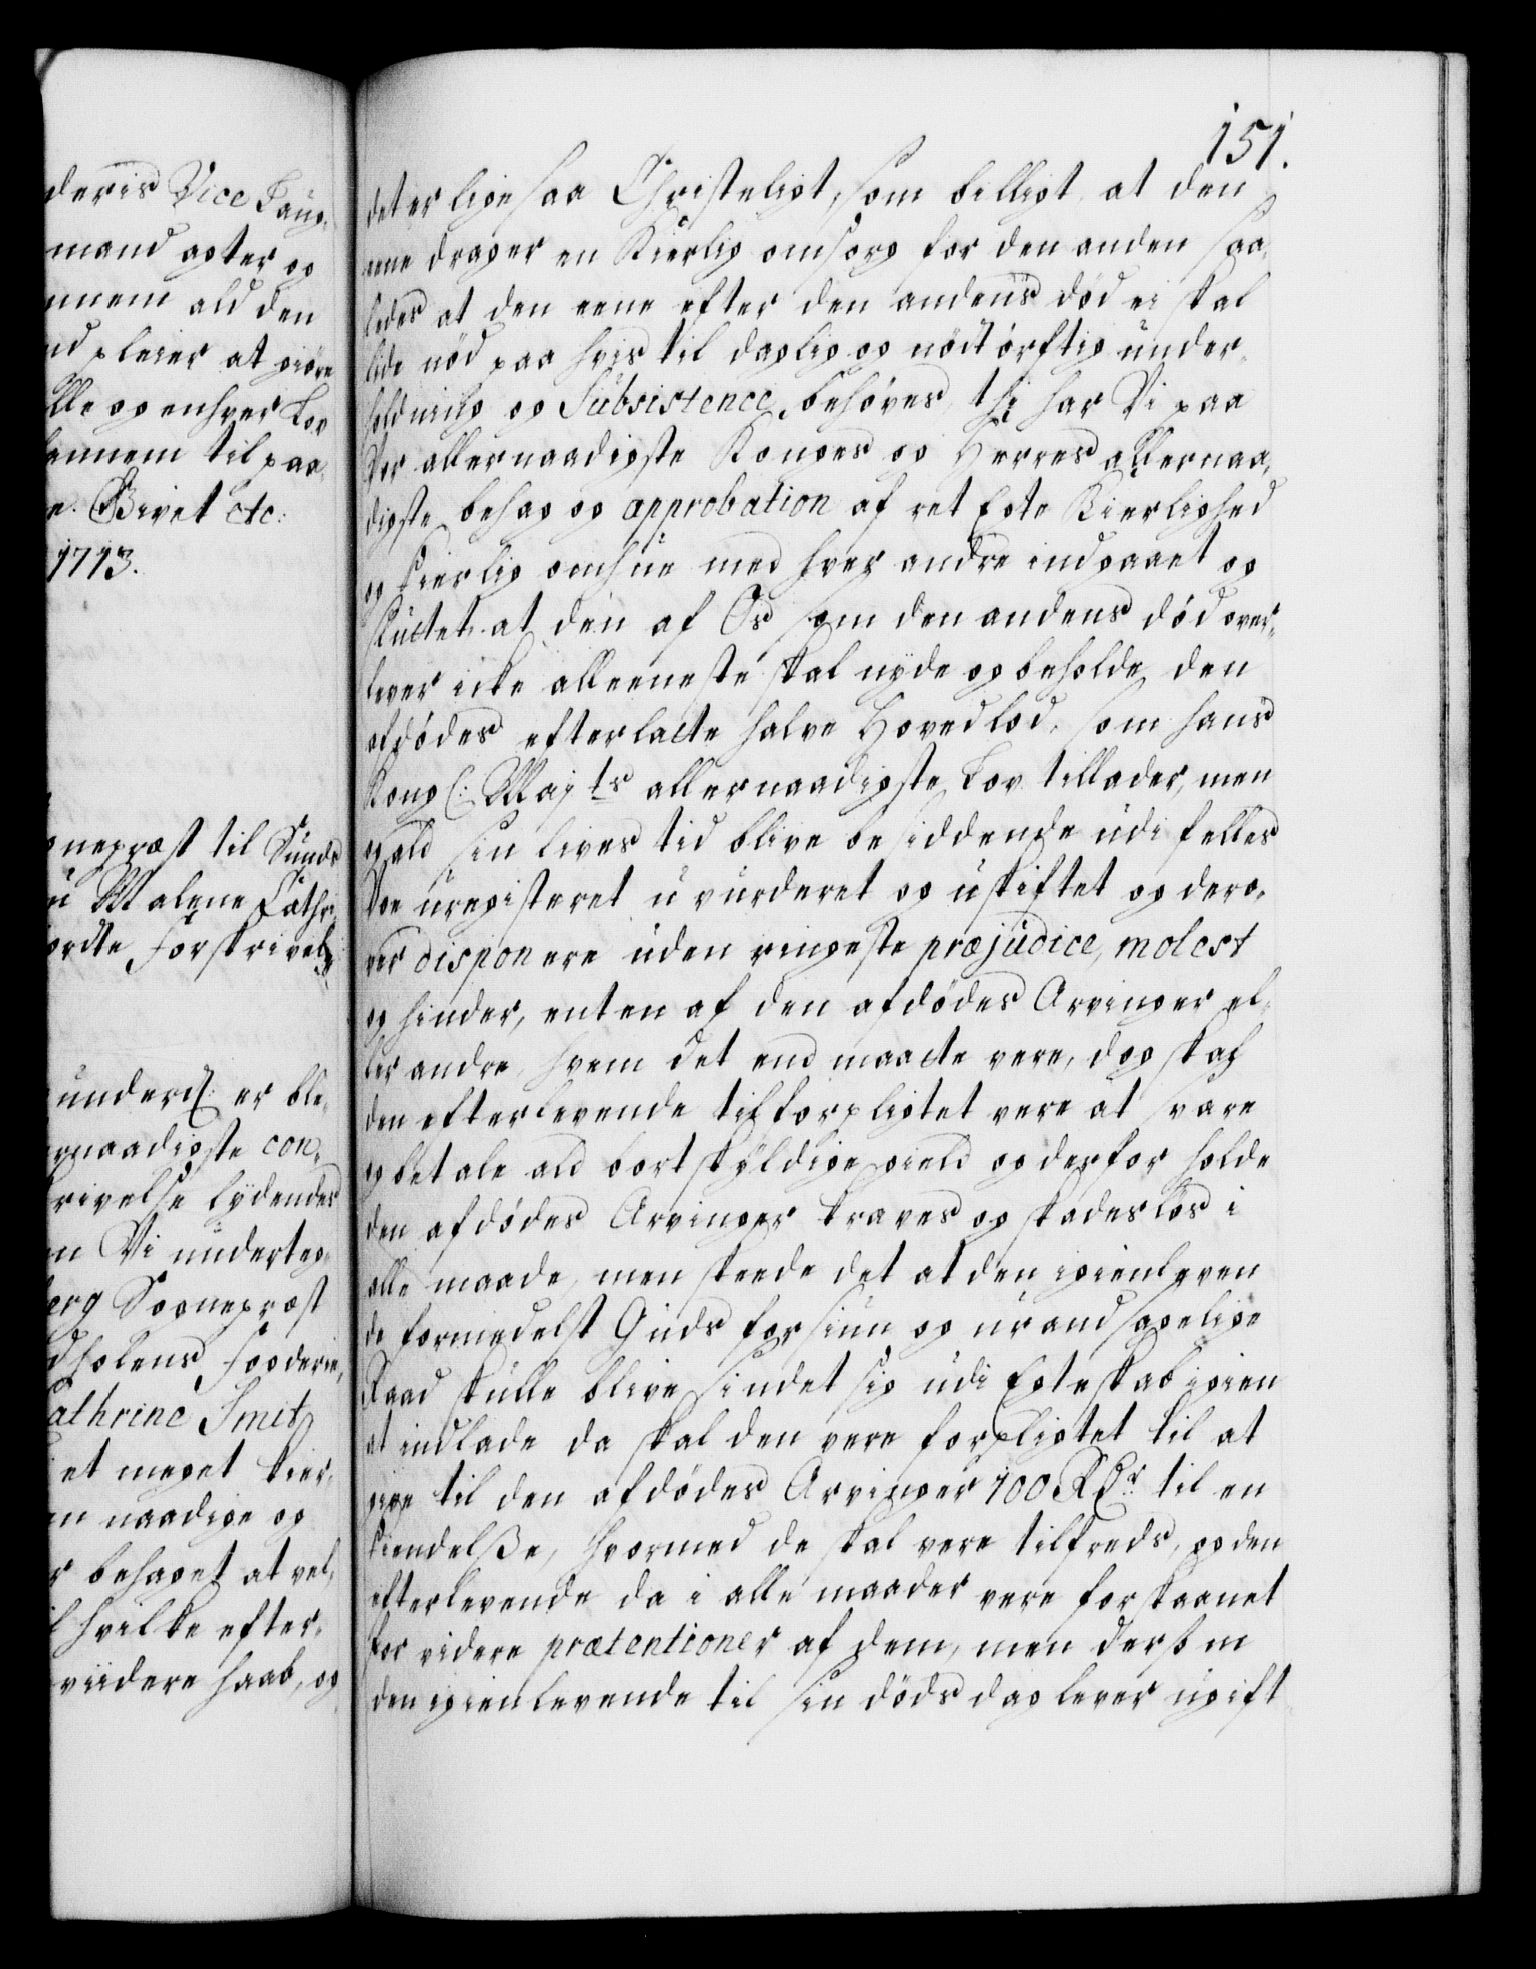 deris Vice Laug,
mand agter og
nnem ald den
nd pleier at giöre
lle og enhver Lov
annem til paa,
e. Givet etc:
1713.
gnepræst til Sunds
u Malene Cathri,
ordte forskrivelse
underd: er ble,
rnaadigste con,
rivelse lydendes
en Vi undertegn,
erg Sognepræst
dholens Fogderie,
athrine Smit
et meget kier,
en naadige og
r behaget at vel,
l hvilke efter,
viidere haab, og
151.
det er lige saa Christeligt, som billigt at den
eene drager en Kierlig omsorg for den anden saa,
ledes at den eene efter den andens död ei skal
lide nöd paa hvis til daglig og nödtörftig under,
holdning og Subsistence behöves, thi har Vi paa
Vor allernaadigste Konges og Herres allernaa,
digste behag og approbation af ret Egte Kierlighed
og kierlig omhue med hver andre indgaaet og
sluttet at den af Os som den andens död over,
lever icke alleeneste skal nyde og beholde den
afdödes efterladte halve Hovedlod, som hans
Kongl: Majts allernaadigste Lov tillader, men
og ald sin lives tid blive besiddende udi felles
Boe uregisteret uvurderet og uskiftet og dero,
ver disponere uden ringeste præjudice, molest
og hinder, enten af den afdödes Arvinger el,
ler andre hvem det end maatte vere, dog skal
den efterlevende tilforpligtet vere at svare
og betale ald bortskyldige gield og derfor holde
den afdödes Arvinger kraves og skadeslös i
alle maade, men skeede det at den igienleven
de formedelst Guds forsiun og urandsagelige
Raad skulle blive sindet sig udi Egteskab igien
at indlade da skal den vere forpligtet til at
give til den afdödes Arvinger 100 Rdr til en
kiendelße, hvormed de skal vere tilfreds, og den
efterlevende da i alle maader vere forskaanet
for videre prætentioner af dem, men dersom
den igienlevende til sin döds dag lever ugift